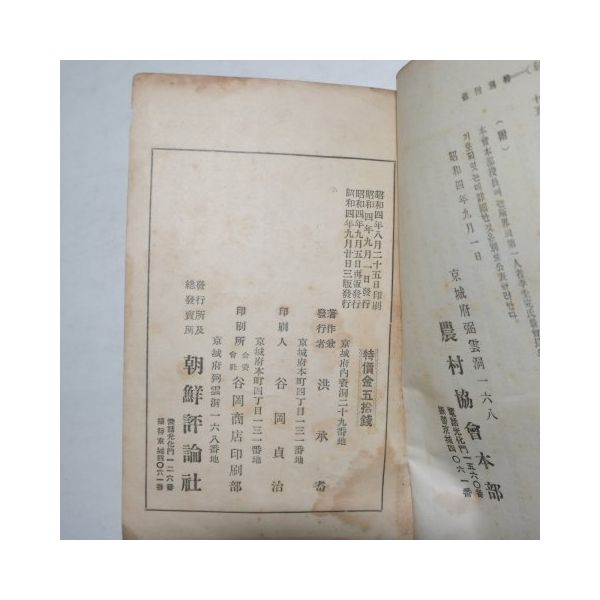 (附)
昭和四年九月一日
京城府弼雲洞一六八
農村協會本部
電話光化門一五六〇番
振替京城四〇六一番
昭和四年八月二十五日印刷
昭和四年九月一日發行
昭和四年九月五日再版發行
昭和四年九月廿日三版發行
特價金五拾錢
京城府內資洞二十九番地
著作兼
發行者 洪承耉
京城府本町四丁目一三一番地
印刷人 谷岡貞治
京城府本町四丁目一三一番地
印刷所 合資會社 谷岡商店印刷部
京城府弼雲洞一六八番地
發行所及
總發賣所 朝鮮評論社
電話光化門一二六番
振替京城四〇六一番